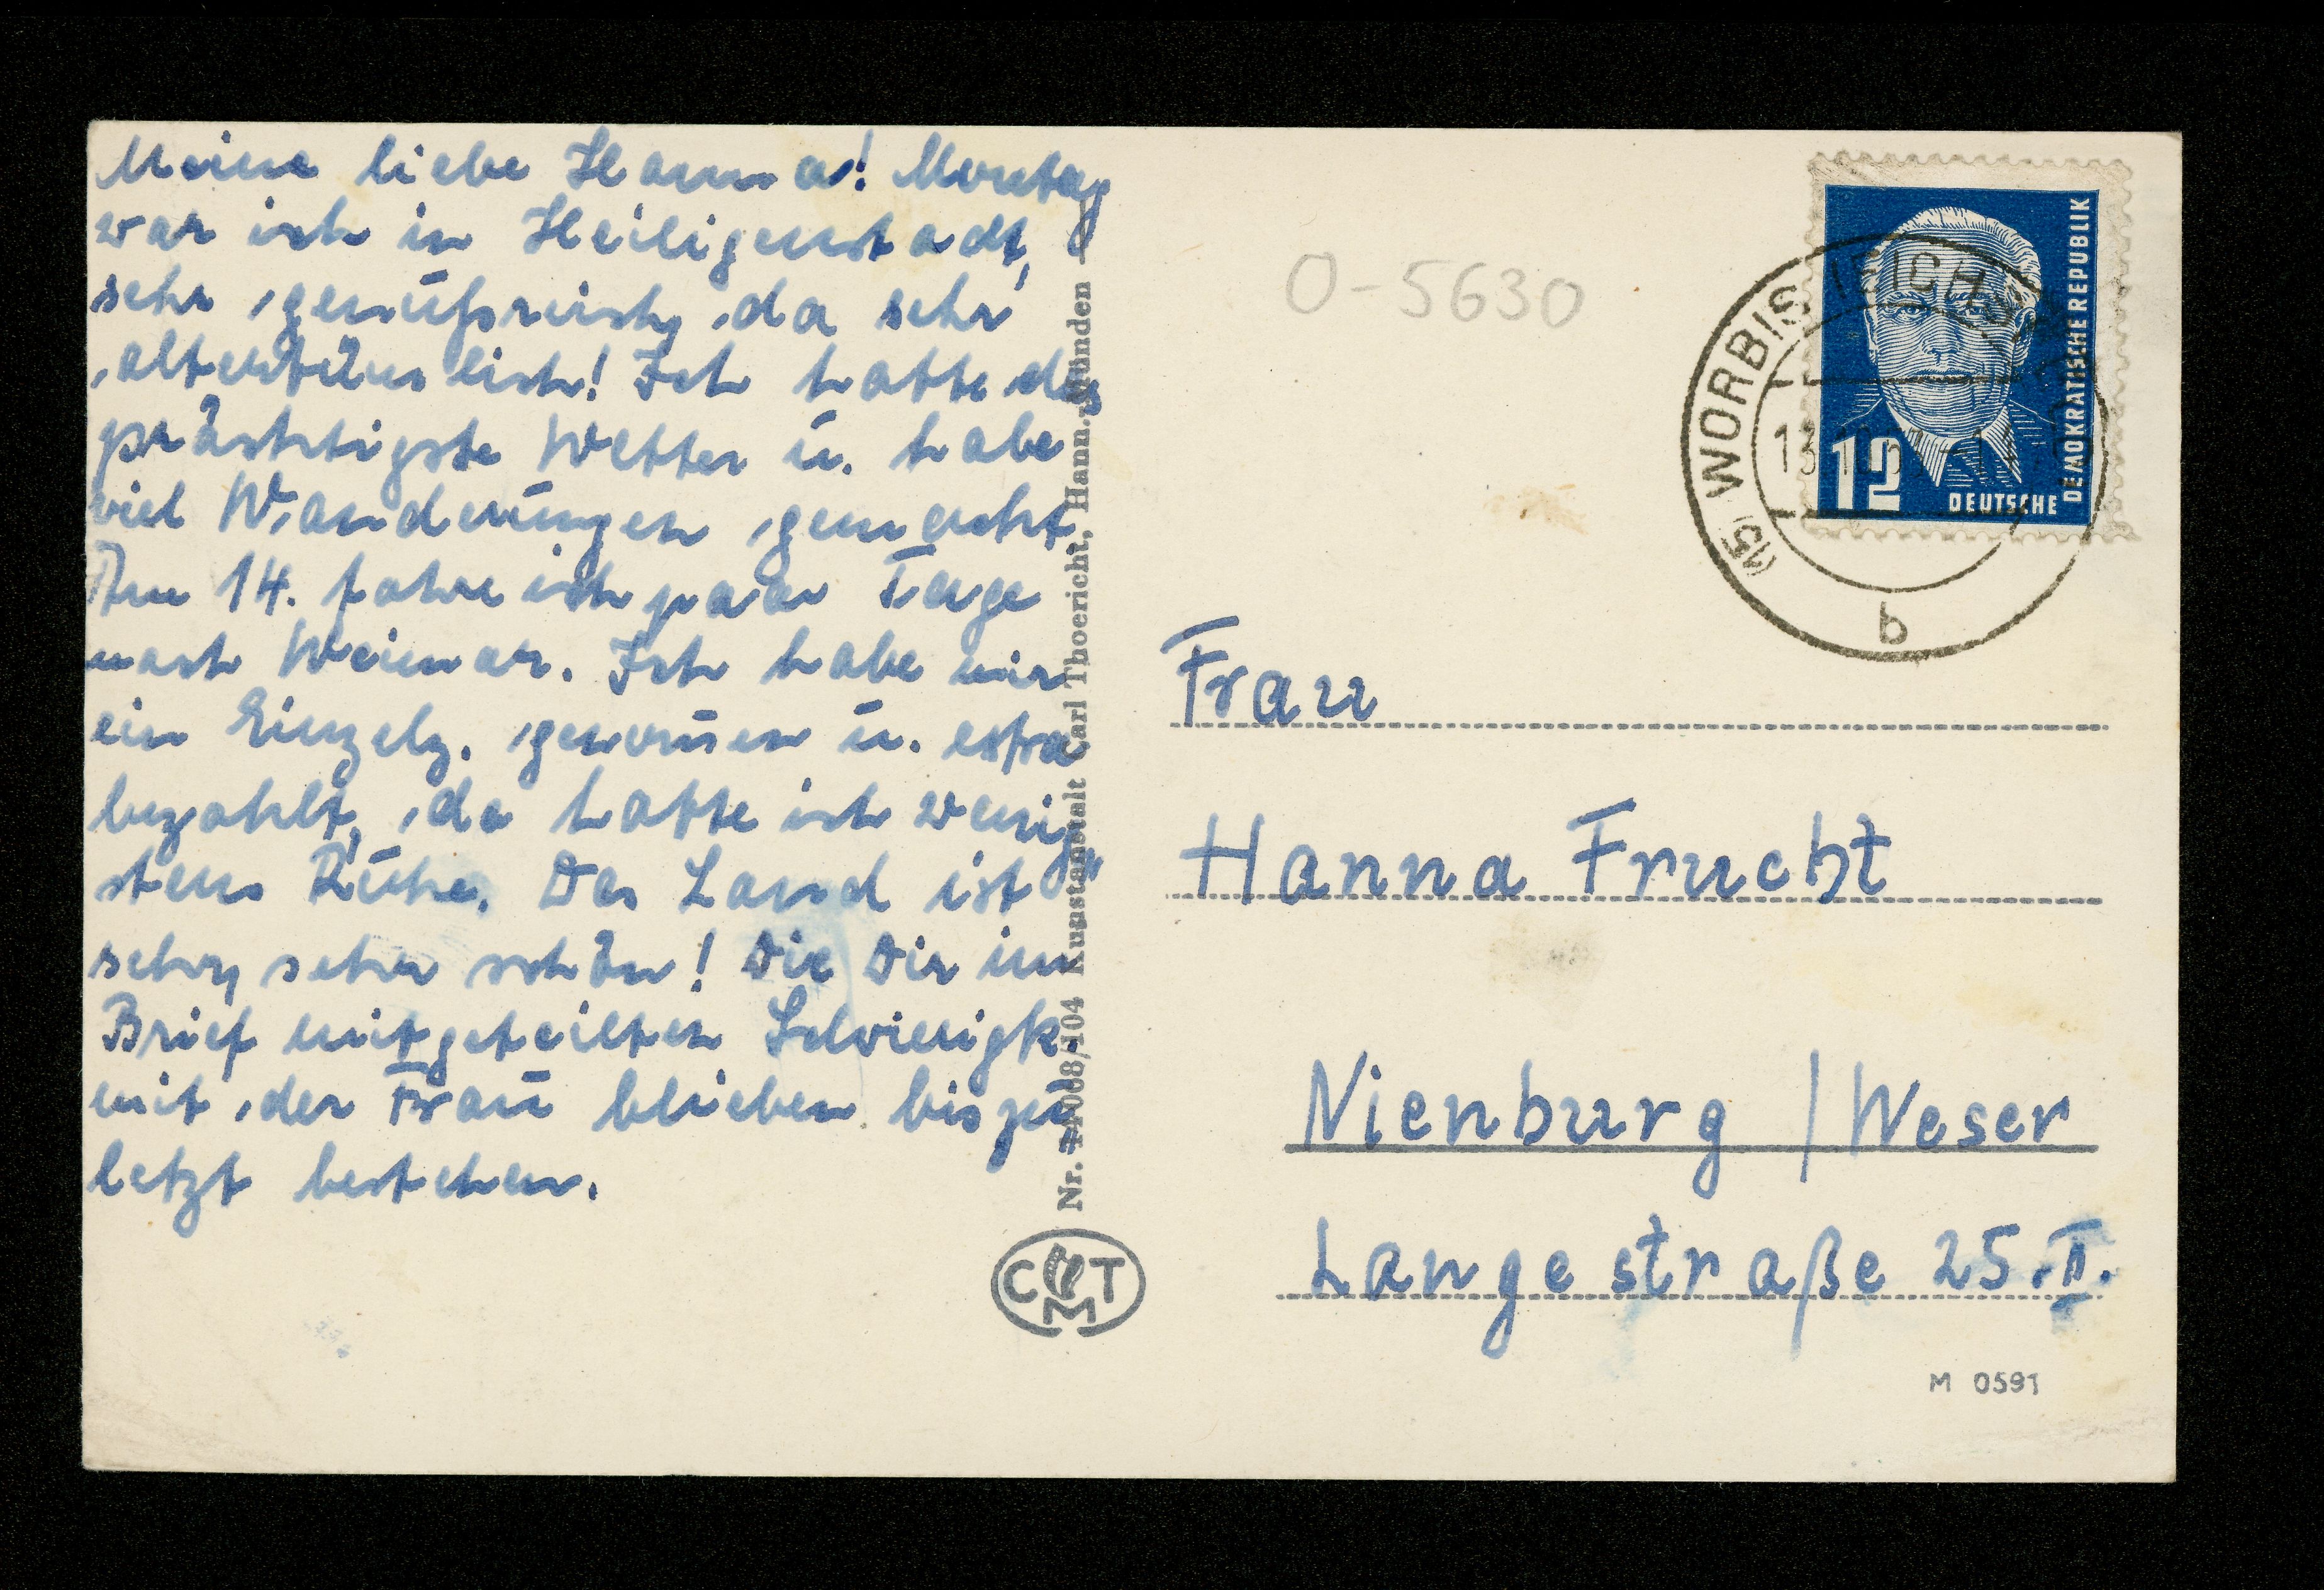 Meine liebe Hanna! Montag
war ich in Heiligenstadt,
sehr genußreich, da sehr
altertümlich! Ich hatte das
prächtigste Wetter u. habe
viel Wanderungen gemacht.
Am 14. fahre ich paar Tage
nach Weimar. Ich habe mir
ein Einzelz. genom̄en u. extra
bezahlt, da hatte ich wenig-
stens Ruhe. Das Land ist
sehr, sehr schön! Die Dir im
Brief mitgeteilten Schwierigk.
mit der Frau blieben bis zu
letzt bestehen.
Nr. 08/104 Kunstanstalt Carl Thoericht, Hann. Münden
C M T
O-5630
DEUTSCHE DEMOKRATISCHE REPUBLIK
12
(15) WORBIS (EICHSFELD)
13
b
Frau
Hanna Frucht
Nienburg / Weser
Langestraße 25. II.
M 0591